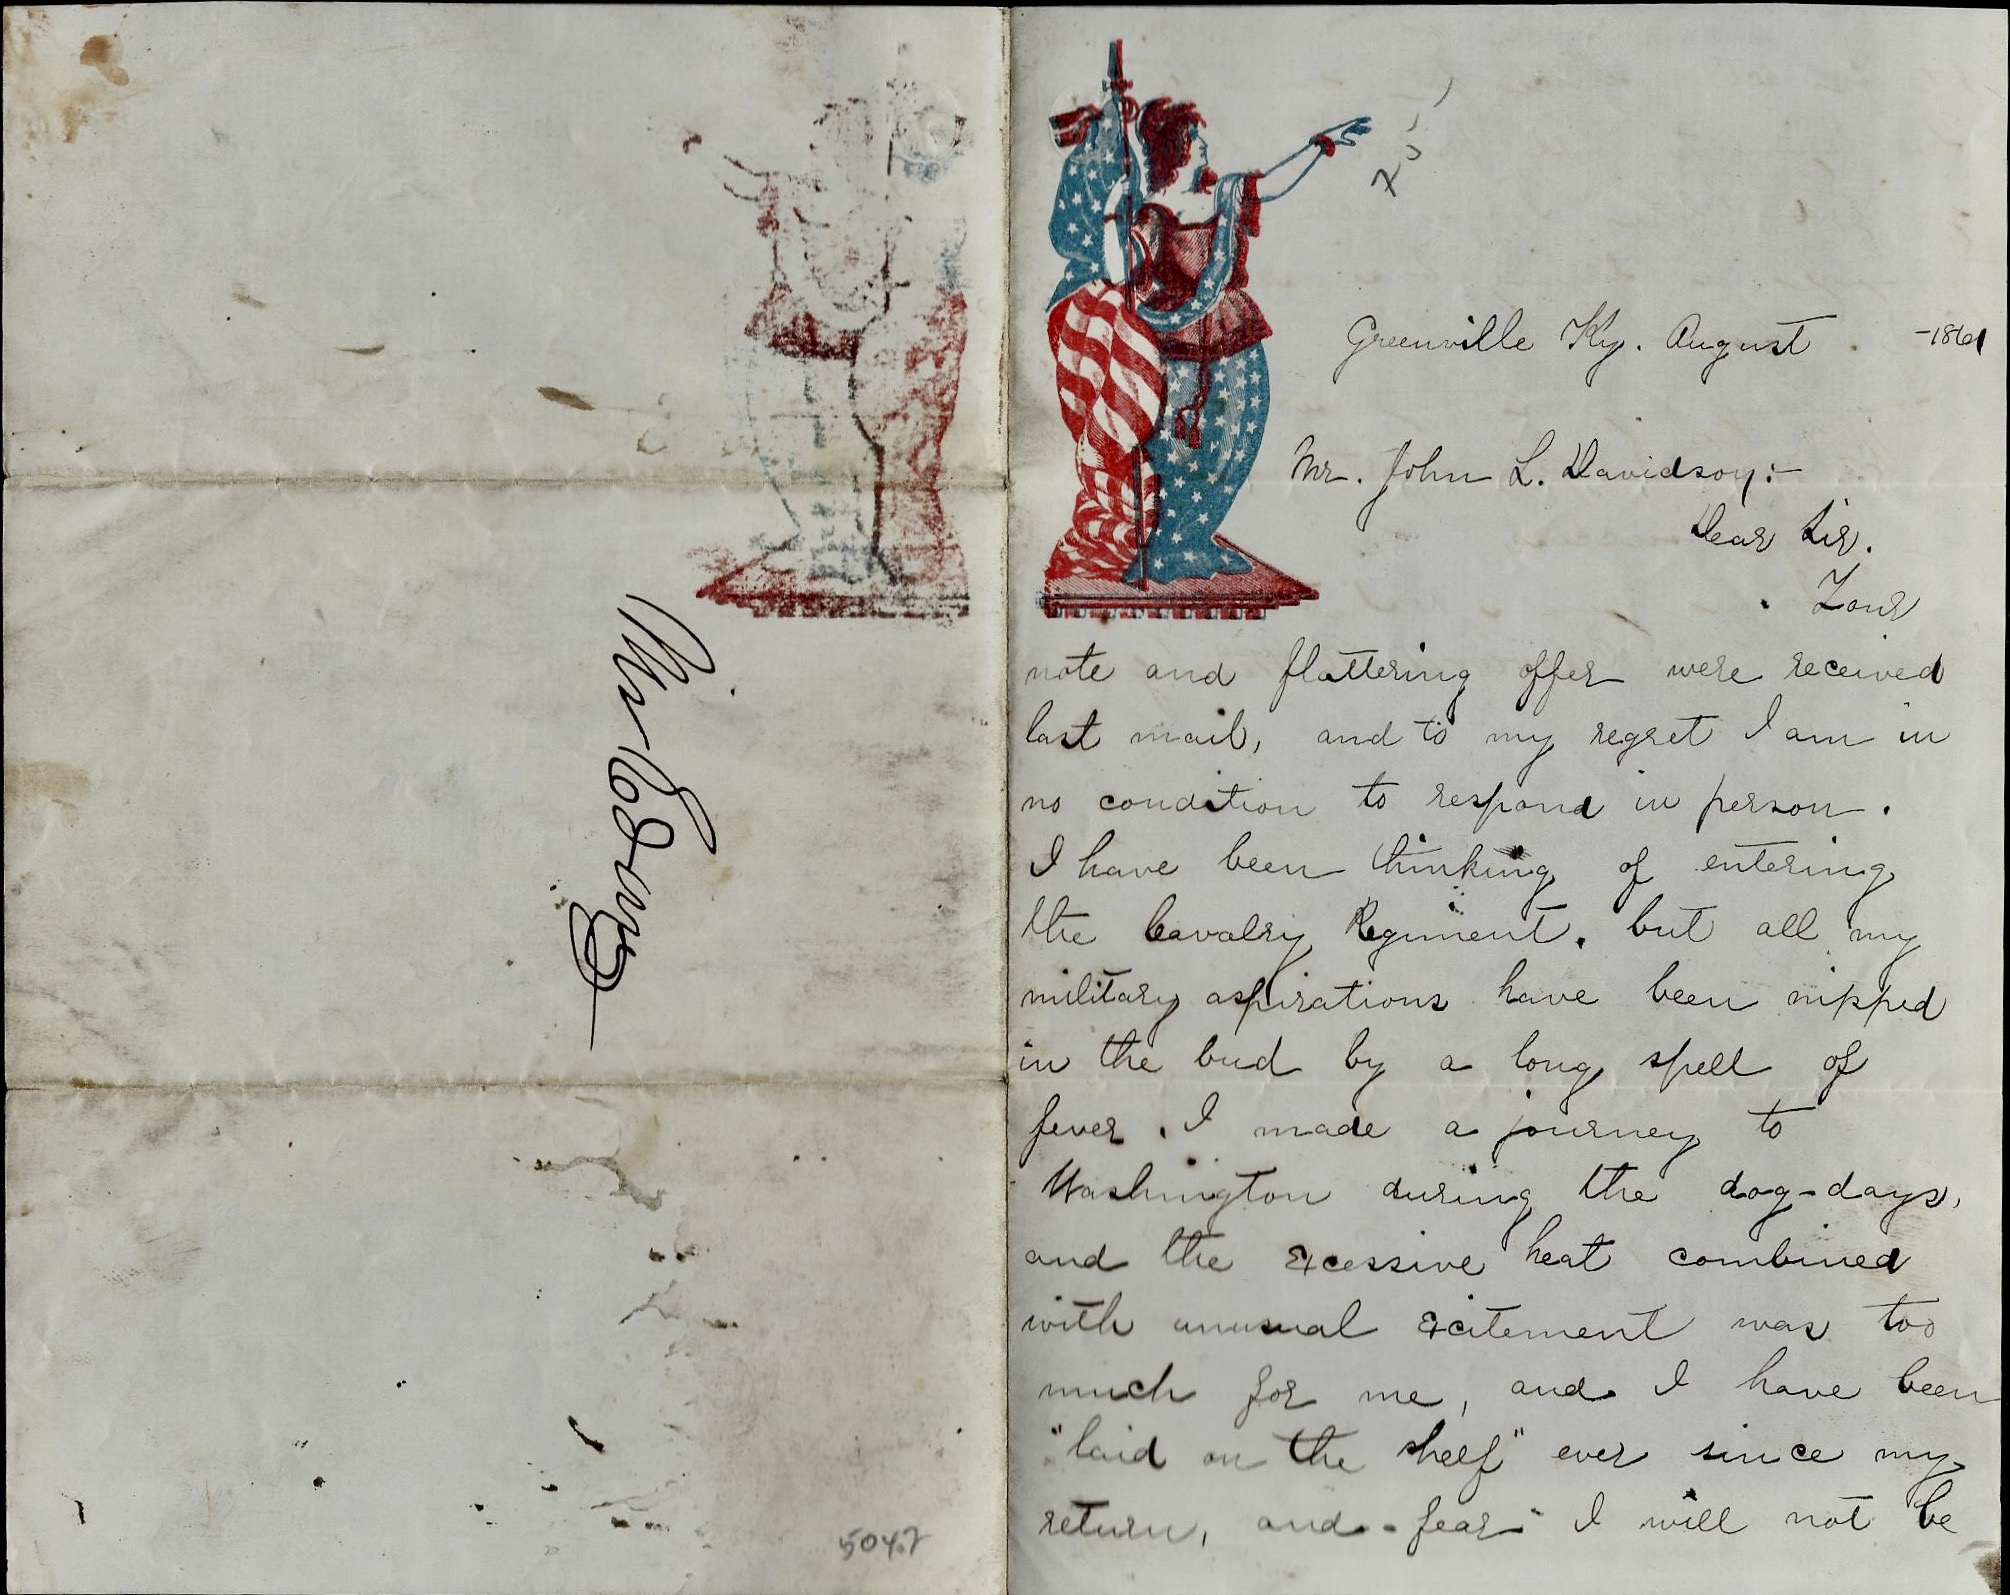 5042
Greenville Ky. August -1861
Mr. John L. Davidson:-
Dear Sir.
Your
note and flattering offer were received
last mail, and to my regret I am in
no condition to respond in person.
I have been thinking of entering
the Cavalry Regiment. but all my
military aspirations have been nipped
in the bud by a long spell of
fever. I made a journey to
Washington during the dog-days,
and the excessive heat combined
with unusual excitement was too
much for me, and I have been
"laid on the shelf" ever since my
return, and fear I will not be